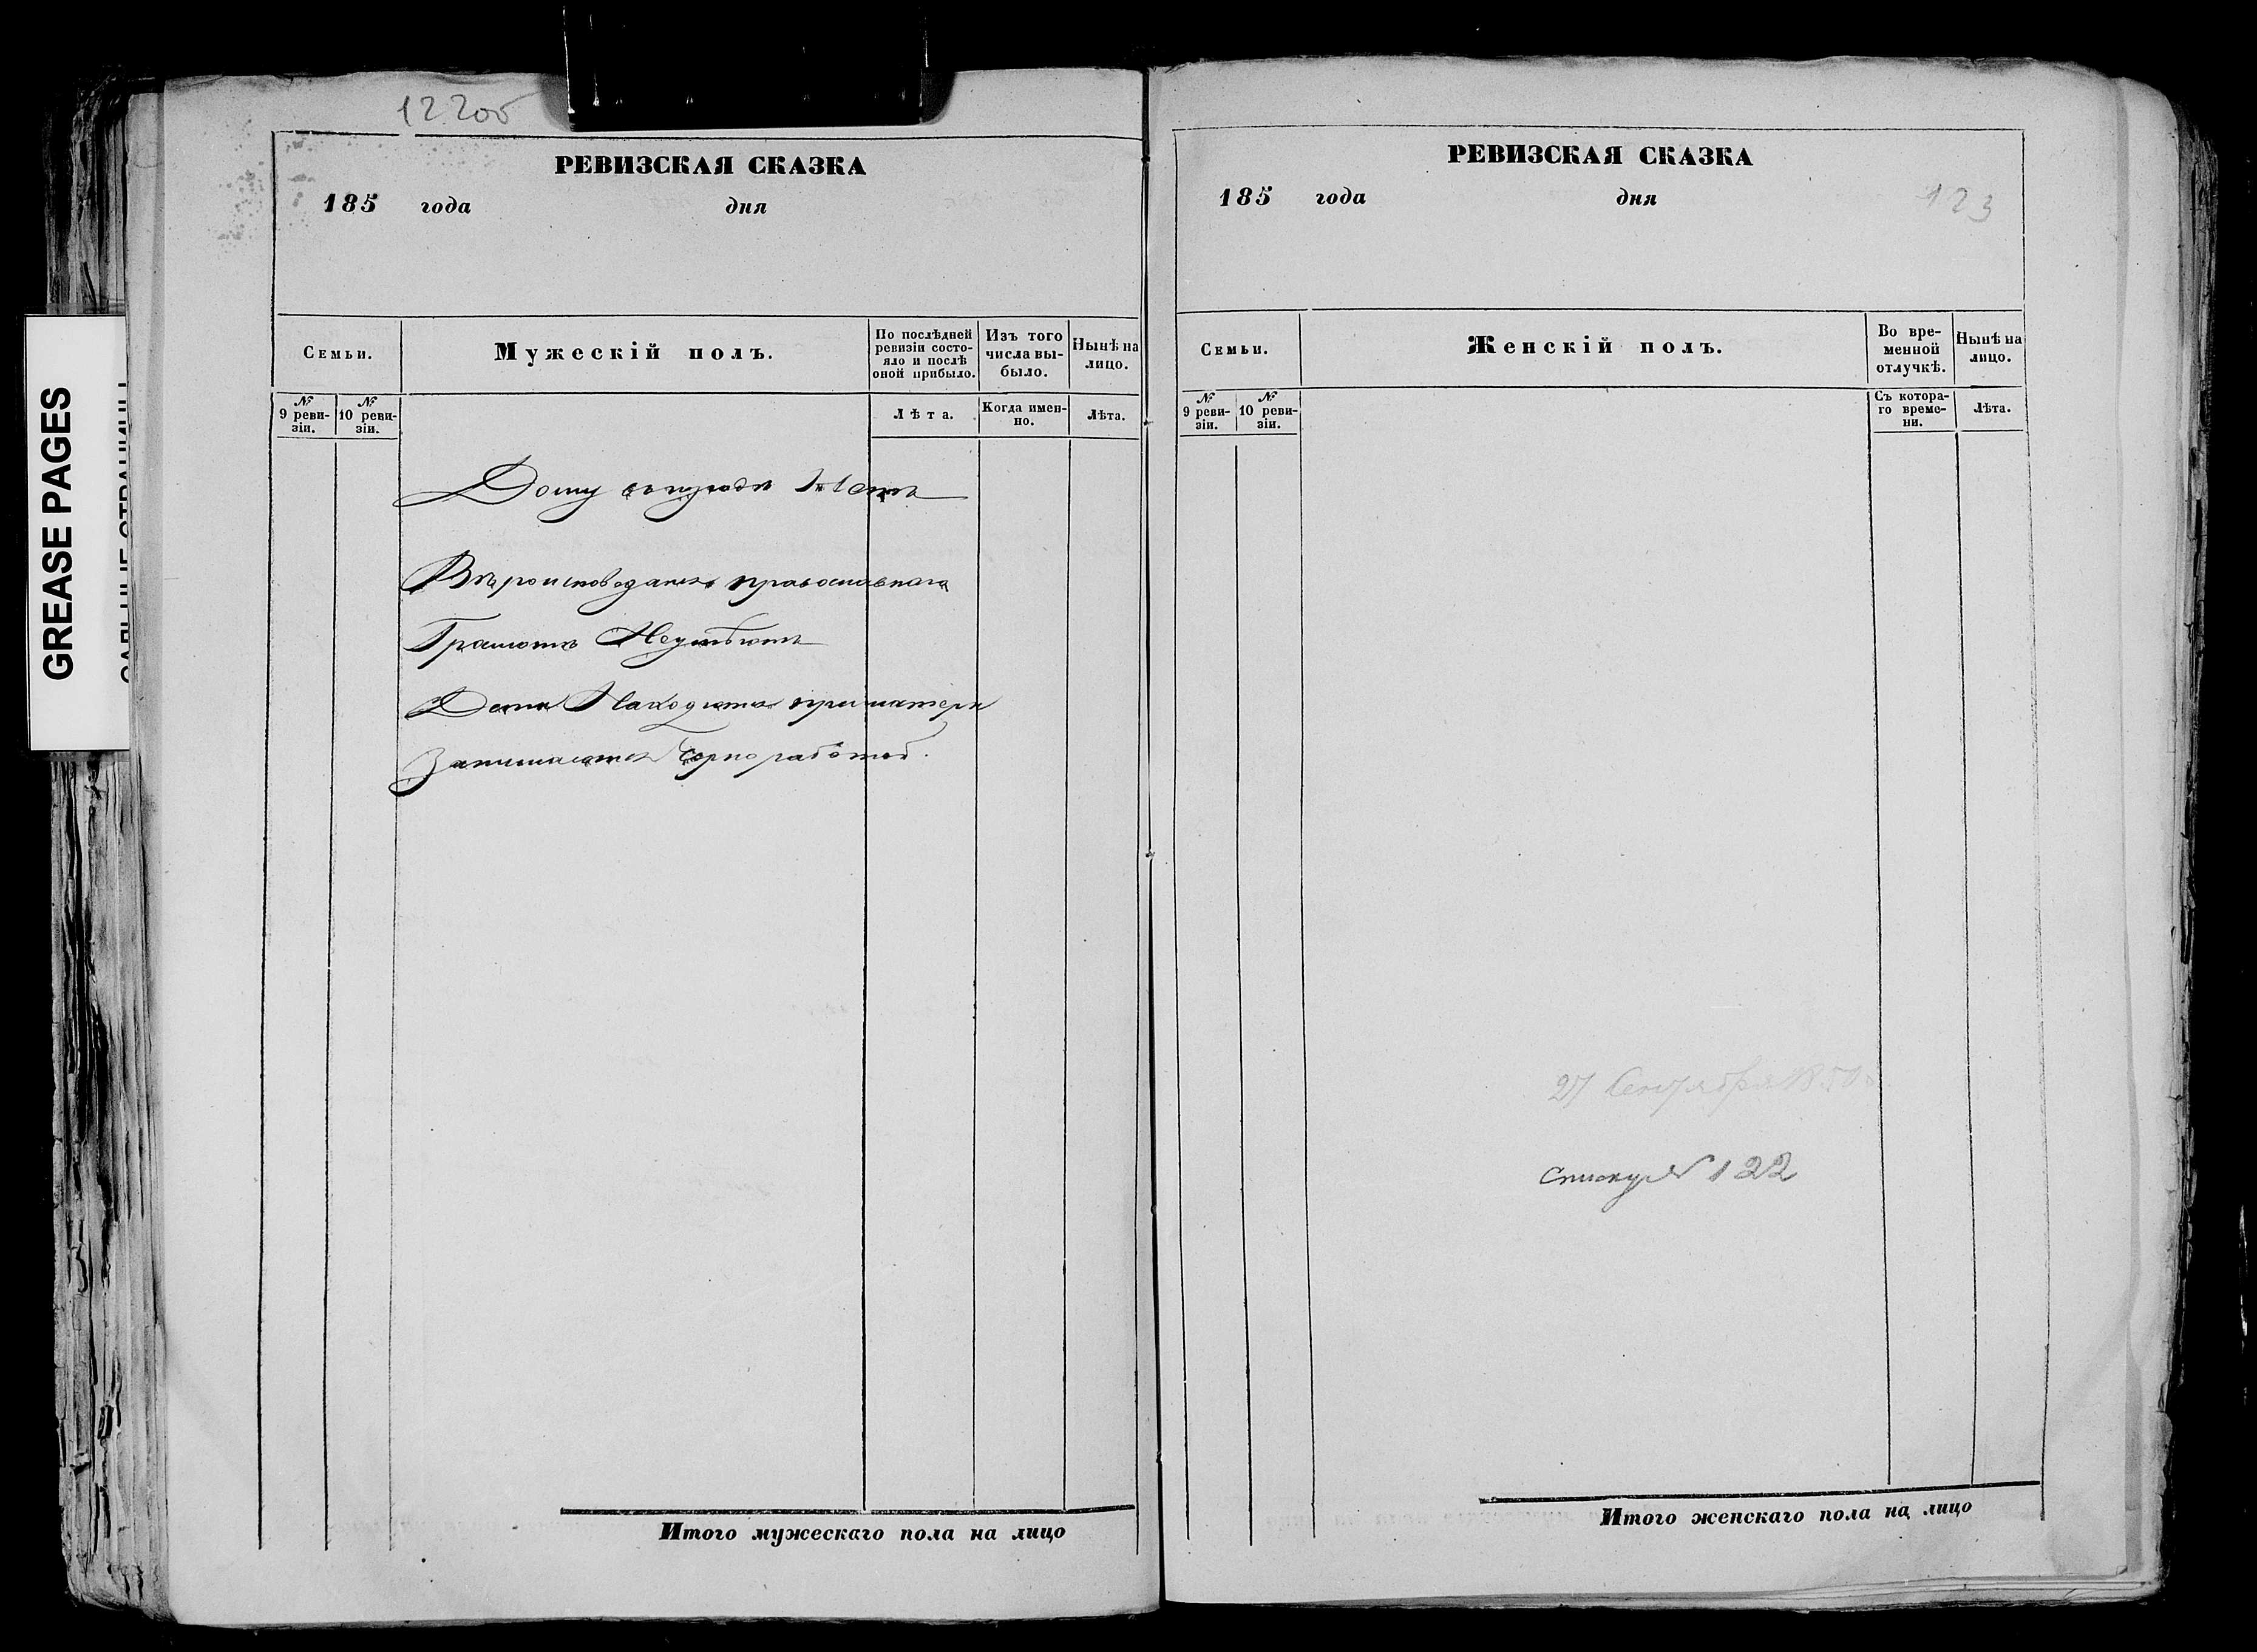 122об
РЕВИЗСКАЯ СКАЗКА
185 года дня
Семьи.
Мужескій полъ.
По послѣдней ревизіи состо-
яло и послѣ оной прибыло.
Изъ того числа вы-
было.
Нынѣ на лицо.
№ 9 реви-
зіи.
№ 10 реви-
зіи.
Лѣта.
Когда имен-
но.
Лѣта.
Дому
Вѣроисповоданія православнаго
Грамотѣ Неумѣютъ
Дети Находятся при матери
Занимаются Чорно работой.
Итого мужескаго пола на лицо
РЕВИЗСКАЯ СКАЗКА
185 года дня
123
Семьи.
Женскій полъ.
Во вре-
менной
отлучкѣ.
Нынѣ на
лицо.
№ 9 реви-
зіи.
№ 10 реви-
зіи.
Съ котора-
го време-
ни.
Лѣта.
27 Сентября
Списку № 122
Итого женскаго пола на лицо
GREASE PAGES